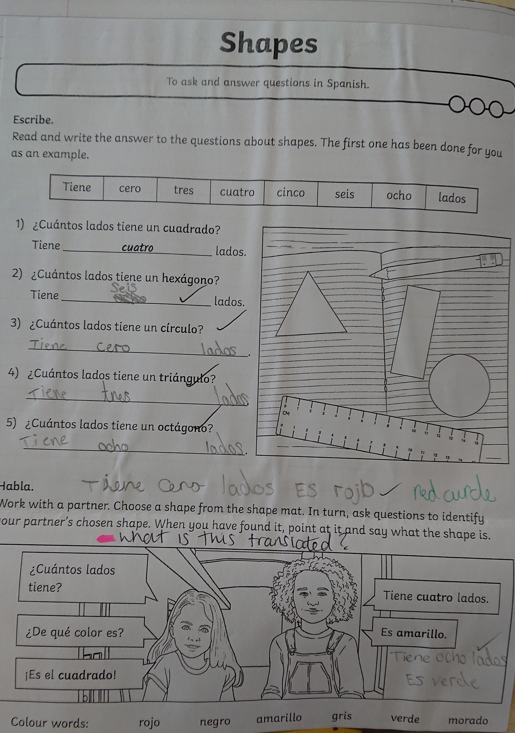 Shapes
To ask and answer questions in Spanish.
Escribe.
Read and write the answer to the questions about shapes. The first one has been done for you
as an example.
Tiene cero tres cuatro cinco seis ocho lados
1) ¿Cuántos lados tiene un cuadrado?
Tiene cuatro lados.
2) ¿Cuántos lados tiene un hexágono?
Seis
Tiene lados.
3) ¿Cuántos lados tiene un círculo?
Tiene cero lados.
4) ¿Cuántos lados tiene un triángulo?
Tiene tres lados
5) ¿Cuántos lados tiene un octágono?
Tiene ocho lados.
Habla. Tiene cero lados Es rojo red circle
Work with a partner. Choose a shape from the shape mat. In turn, ask questions to identify
your partner's chosen shape. When you have found it, point at it and say what the shape is.
what is this translated?
¿Cuántos lados
tiene?
Tiene cuatro lados.
¿De qué color es?
Es amarillo.
Tiene ocho lados
Es verde
¡Es el cuadrado!
Colour words: rojo negro amarillo gris verde morado